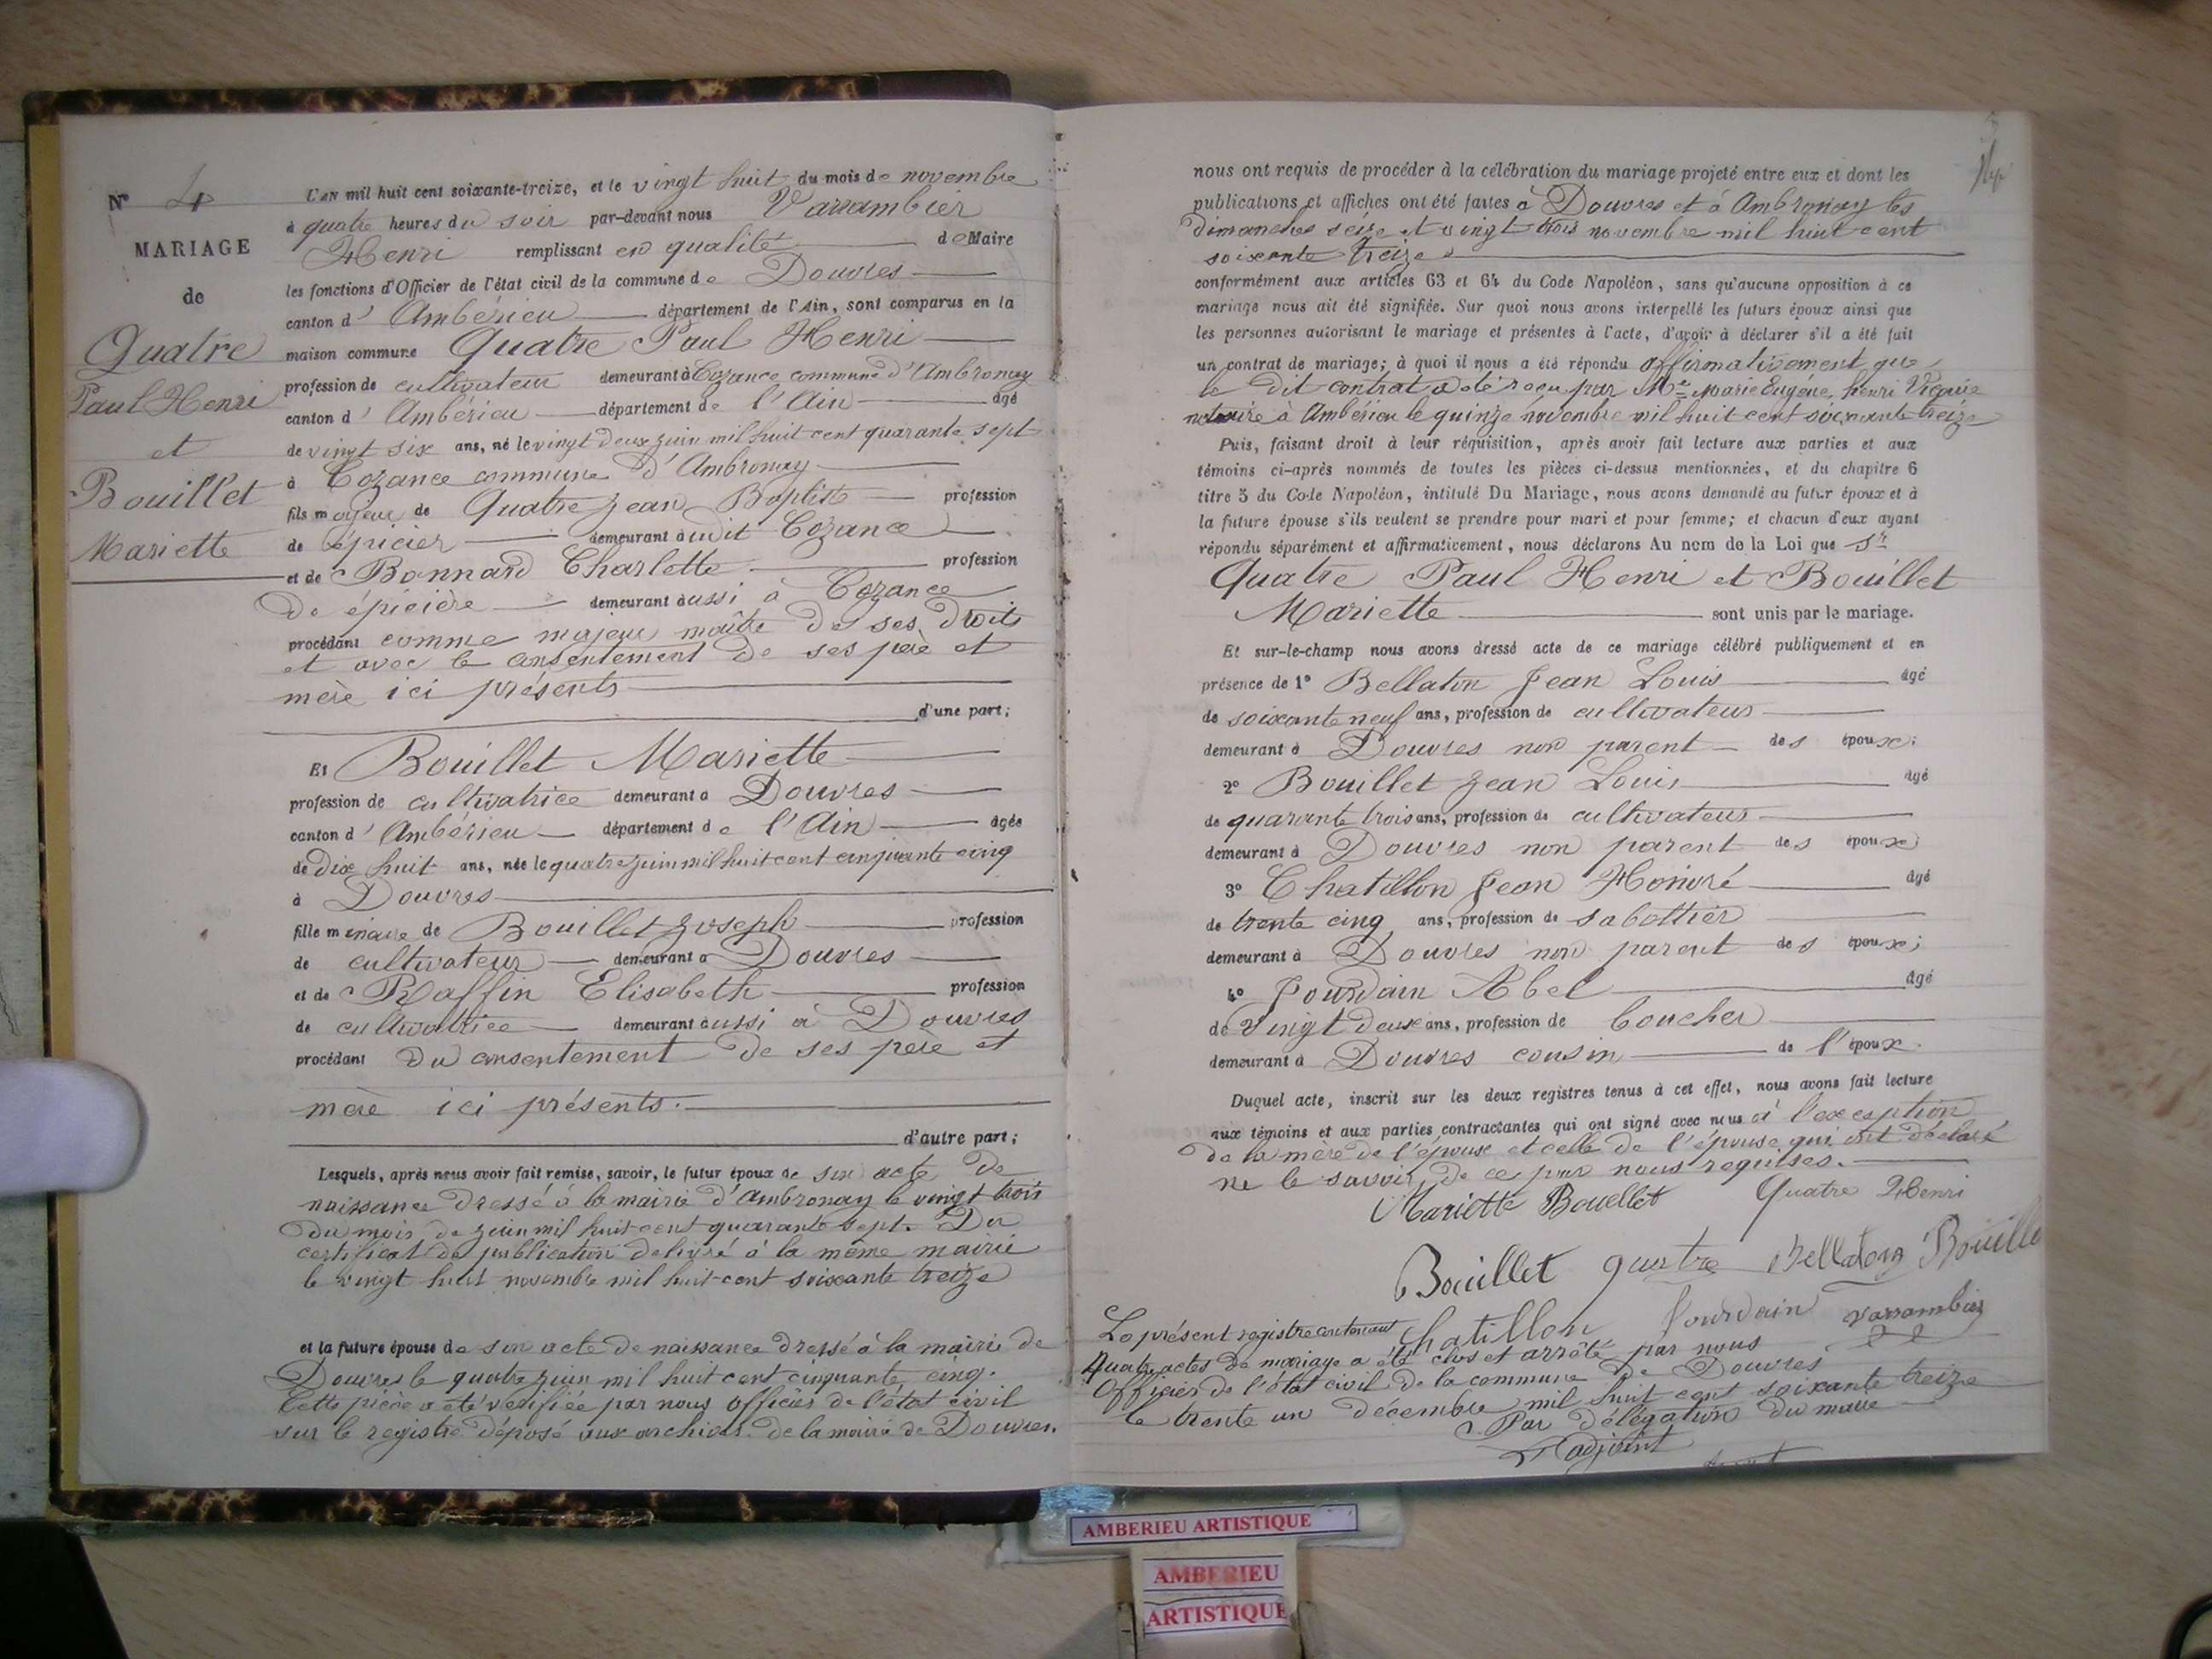 N° 4
MARIAGE
de
Quatre
Paul Henri
et
Bouillet
Mariette
L'AN mil huit cent soixante-treize, et le vingt huit du mois de novembre
à quatre heures du soir par-devant nous Varrambier
Henri remplissant en qualité de Maire
les fonctions d'Officier de l'état civil de la commune de Douvres
canton d'Ambérieu département de l'Ain, sont comparus en la
maison commune Quatre Paul Henri
profession de cultivateur demeurant à Cozance commune d'Ambronay
canton d'Ambérieu département de l'Ain âgé
de vingt six ans, né le vingt deux juin mil huit cent quarante sept
à Cozance commune d'Ambronay
fils majeur de Quatre Jean Baptiste profession
de épicier demeurant à udit Cozance
et de Bonnard Charlotte profession
de épicière demeurant aussi à Cozance
procédant comme majeur maître de ses droits
et avec le consentement de ses père et
mère ici présents
d'une part;
Et Bouillet Mariette
profession de cultivatrice demeurant à Douvres
canton d'Ambérieu département de l'Ain âgée
de dix huit ans, née le quatre juin mil huit cent cinquante cinq
à Douvres
fille mineure de Bouillet Joseph profession
de cultivateur demeurant à Douvres
et de Raffin Elisabeth profession
de cultivatrice demeurant aussi à Douvres
procédant du consentement de ses père et
mère ici présents.
d'autre part;
Lesquels, après nous avoir fait remise, savoir, le futur époux de son acte de
naissance dressé à la mairie d'Ambronay le vingt trois
du mois de juin mil huit-cent quarante sept. Du
certificat de publication délivré à la même mairie
le vingt huit novembre mil huit-cent soixante treize
et la future épouse de son acte de naissance dressé à la mairie de
Douvres le quatre juin mil huit cent cinquante cinq.
Cette pièce a été vérifiée par nous officier de l'état civil
sur le registre déposé aux archives de la mairie de Douvres.
nous ont requis de procéder à la célébration du mariage projeté entre eux et dont les
publications et affiches ont été faites à Douvres et à Ambronay les
dimanches seize et vingt trois novembre mil huit cent
soixante treize
conformément aux articles 63 et 64 du Code Napoléon, sans qu'aucune opposition à ce
mariage nous ait été signifiée. Sur quoi nous avons interpellé les futurs époux ainsi que
les personnes autorisant le mariage et présentes à l'acte, d'avoir à déclarer s'il a été fait
un contrat de mariage; à quoi il nous a été répondu affirmativement que
le dit contrat a été reçu par Me Marie Eugène, henri
notaire à Ambérieu le quinze novembre mil huit cent soixante treize
Puis, faisant droit à leur réquisition, après avoir fait lecture aux parties et aux
témoins ci-après nommés de toutes les pièces ci-dessus mentionnées, et du chapitre 6
titre 5 du Code Napoléon, intitulé Du Mariage, nous avons demandé au futur époux et à
la future épouse s'ils veulent se prendre pour mari et pour femme; et chacun d'eux ayant
répondu séparément et affirmativement, nous déclarons Au nom de la Loi que Sr
Quatre Paul Henri et Bouillet
Mariette sont unis par le mariage.
Et sur-le-champ nous avons dressé acte de ce mariage célébré publiquement et en
présence de 1° Bellaton Jean Louis âgé
de soixante neuf ans, profession de cultivateur
demeurant à Douvres non parent des époux;
2° Bouillet Jean Louis âgé
de quarante trois ans, profession de cultivateur
demeurant à Douvres non parent des époux
3° Chatillon Jean Honoré âgé
de trente cinq ans, profession de sabottier
demeurant à Douvres non parent des époux;
4° Jourdain Abel âgé
de vingt deux ans, profession de boucher
demeurant à Douvres cousin de l'époux.
Duquel acte, inscrit sur les deux registres tenus à cet effet, nous avons fait lecture
aux témoins et aux parties contractantes qui ont signé avec nous à l'exception
de la mère de l'époux et celle de l'épouse qui ont déclaré
ne le savoir, de ce par nous requises.
Mariette Bouellet Quatre Henri
Bouillet quatre Bellaton Bouille
Chatillon Jourdain Varrambier
Le présent registre contenant
quatre actes de mariage a été clos et arrêté par nous
Officier de l'état civil de la commune de Douvres
le trente un décembre mil huit cent soixante treize
Par délégation du maire
L'adjoint
AMBERIEU ARTISTIQUE
AMBERIEU
ARTISTIQUE